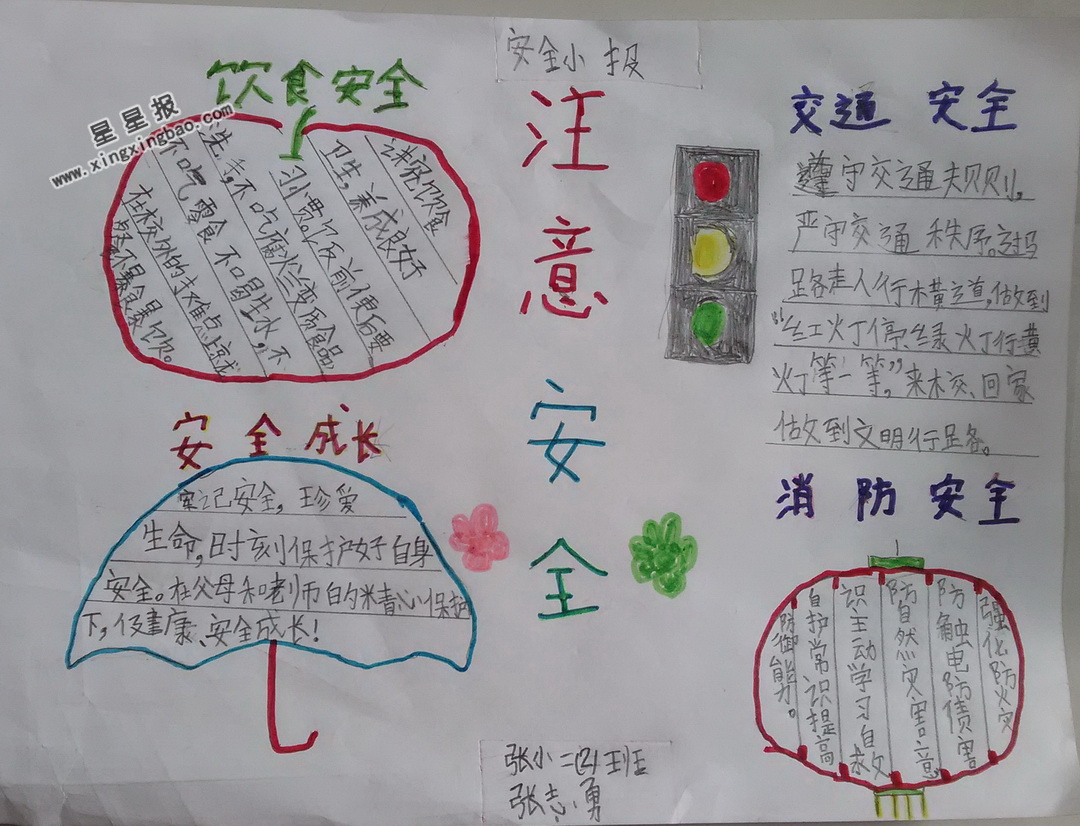 安全小报
星星报
www.xingxingbao.com
饮食安全
讲究饮食
卫生,养成良好
习惯。饭前便后要
洗手,不吃腐烂变质食品
不吃零食 不喝生水,不
在校外的摊点就
餐不暴食暴饮。
注意安全
交通安全
遵守交通规则。
严守交通秩序。过马
路走人行横道,做到
“红灯停绿灯行黄
灯等一等”,来校、回家
做到文明行路。
安全成长
牢记安全,珍爱
生命,时刻保护好自身
安全。在父母和老师的精心保护
下,健康、安全成长!
消防安全
强化防火灾
防触电防债害
防自然灾害意
识主动学习自救
自护常识提高
防御能力。
张小二(2)班
张志勇